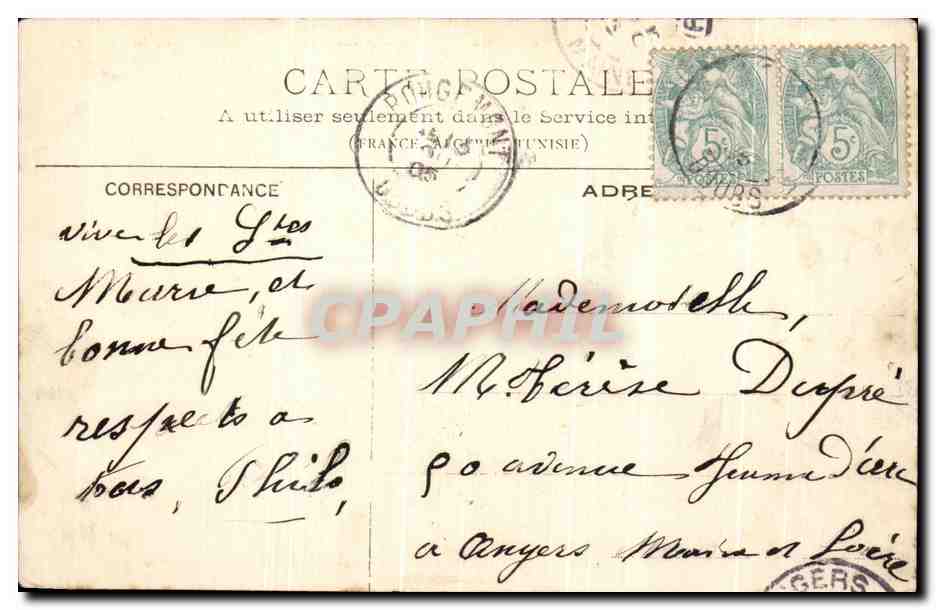 CARTE POSTALE
A utiliser seulement dans le Service int
(FRANCE, ALGÉRIE, TUNISIE)
CORRESPONDANCE
ADRE
ROUGEMONT
05
DOUBS
5c
POSTES
5c
POSTES
DOUBS
vive les Stes
Marie, et
bonne fête
respects a
tous, Philo,
CPAPHIL
Mademoiselle,
M. Thérèse Dupré
50 avenue Jeanne d'arc
a Angers Maine et Loire
ANGERS